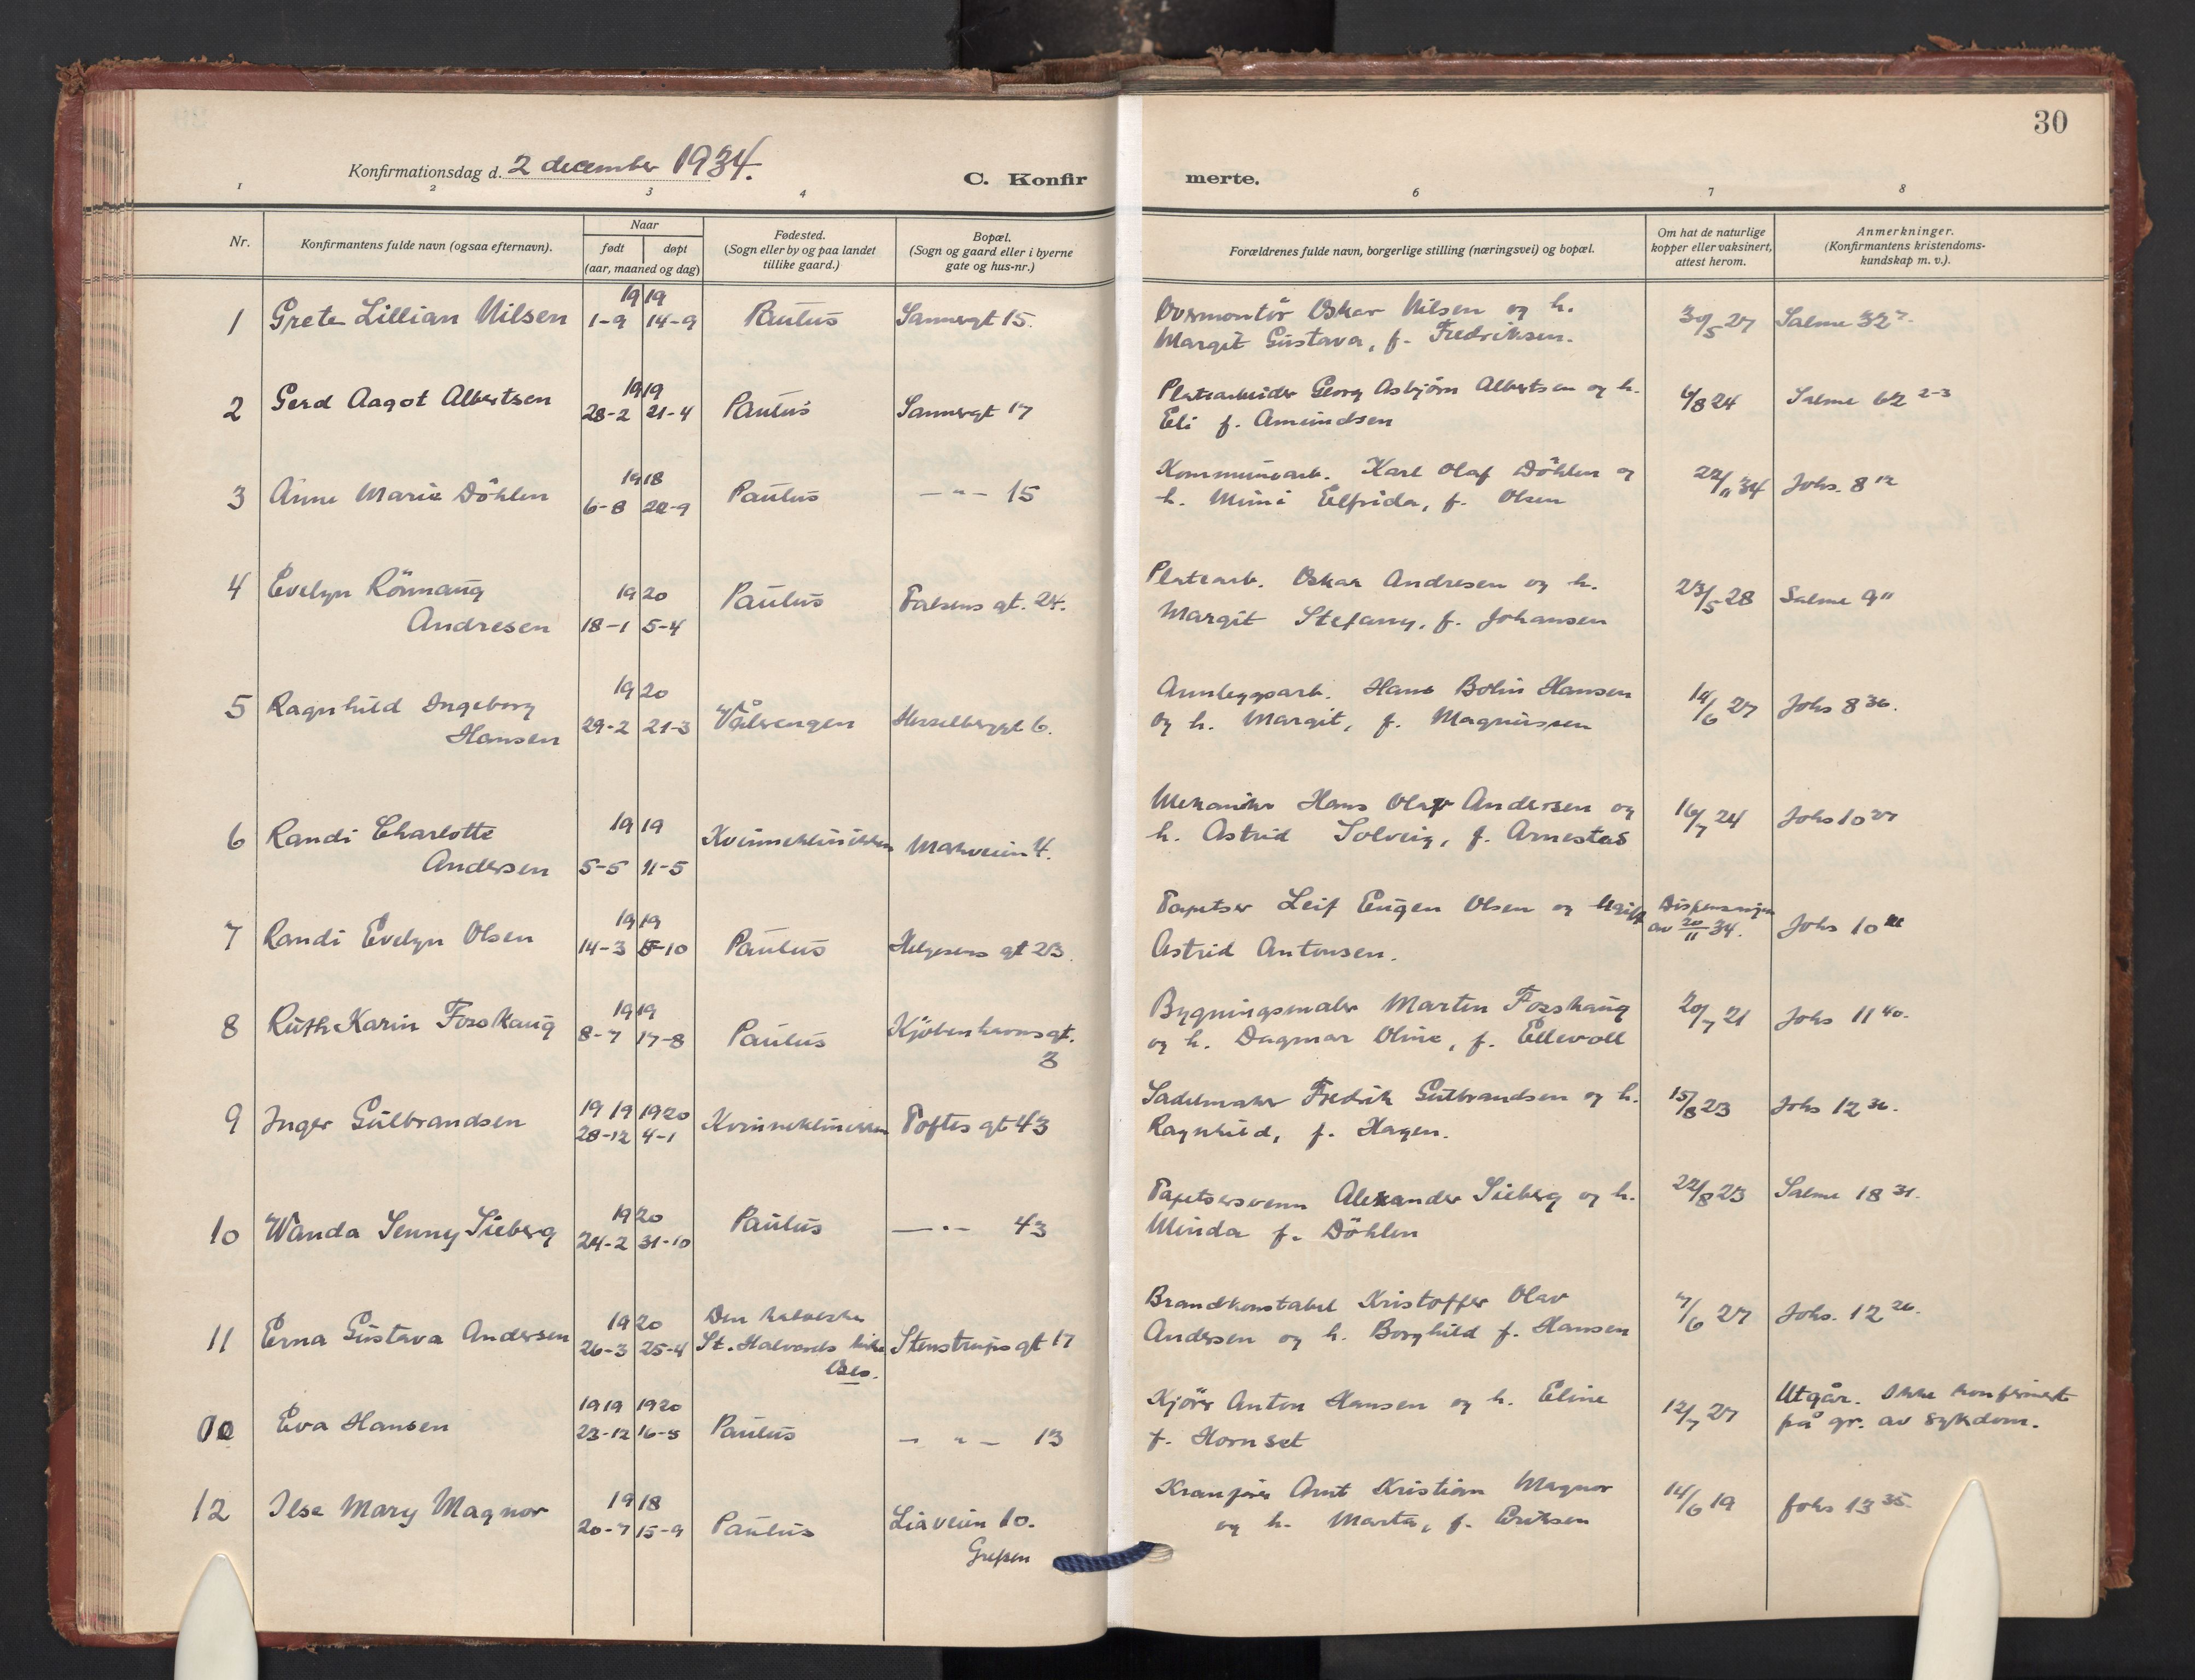 30
Konfirmationsdag d. 2 december 1934.
C. Konfirmerte.
1 2 3 4 6 7 8
Nr.
Konfirmantens fulde navn (ogsaa efternavn).
Naar
født døpt
(aar, maaned og dag)
Fødested.
(Sogn eller by og paa landet
tillike gaard.)
Bopæl.
(Sogn og gaard eller i byerne
gate og hus-nr.)
Forældrenes fulde navn, borgerlige stilling (næringsvei) og bopæl.
Om hat de naturlige
kopper eller vaksinert,
attest herom.
Anmerkninger.
(Konfirmantens kristendoms-
kundskap m. v.).
1 Grete Lillian Nilsen 1919 1-9 14-9 Paulus Sannergt 15.
Overmontör Oskar Nilsen og h.
Margit Gustava, f. Fredriksen.
30/5 27 Salme 32 7.
2 Gerd Aagot Albertsen 1919 28-2 21-4 Paulus Sannergt 17
Platearbeider Georg Asbjörn Albertsen og h.
Eli f. Amundsen
6/8 24 Salme 62 2-3
3 Anne Marie Döhlen 1918 6-8 22-9 Paulus — " — 15
Kommunearb. Karl Olaf Döhlen og
h. Mimi Elfrida, f. Olsen
22/11 34 Johs. 8 12
4 Evelyn Rönnaug
Andresen 1920 18-1 5-4 Paulus Falsens gt. 24.
Platearb. Oskar Andresen og h.
Margit Stefany, f. Johansen
23/5 28 Salme 9 11
5 Ragnhild Ingeborg
Hansen 1920 29-2 21-3 Vålerengen Hesselberggt 6.
Anleggsarb. Hans Bolin Hansen
og h. Margit, f. Magnussen
14/6 27 Johs 8 36.
6 Randi Charlotte
Andersen 1919 5-5 11-5 Kvinneklinikken Markveien 4.
Mekaniker Hans Olaf Andersen og
h. Astrid Solveig, f. Arnestad
16/7 24 Johs 10 27
7 Randi Evelyn Olsen 1919 14-3 5-10 Paulus Helgesens gt 23.
Tapetser Leif Eugen Olsen og ugift
Astrid Antonsen.
Dispensasjon
av 20/11 34. Johs 10
8 Ruth Karin Fosshaug 1919 8-7 17-8 Paulus Kjöbenhavnsgt.
3
Bygningsmaler Martin Fosshaug
og h. Dagmar Oline, f. Ellevoll
20/7 21 Johs 11 40.
9 Inger Gulbrandsen 1919 1920 28-12 4-1 Kvinneklinikken Toftes gt 43
Sadelmaker Fredrik Gulbrandsen og h.
Ragnhild, f. Hagen.
15/8 23 Johs 12 36.
10 Wanda Jenny Sieberg 1920 24-2 31-10 Paulus — " — 43
Tapetsersvenn Alexander Sieberg og h.
Minda f. Döhlen
22/8 23 Salme 18 31.
11 Erna Gustava Andersen 1920 26-3 25-4 Den katolske
St. Halvards kirke
Oslo. Stenstrups gt 17
Brandkonstabel Kristoffer Olav
Andersen og h. Borghild f. Hansen
7/6 27 Johs. 12 26.
Eva Hansen 1919 1920 23-12 16-5 Paulus — " — 13
Kjörer Anton Hansen og h. Eline
f. Hornset
12/7 27 Utgår. Ikke konfirmert
på gr. av sykdom.
12 Ilse Mary Magnor 1918 20-7 15-9 Paulus Liaveien 10.
Grefsen
Kranfører Arnt Kristian Magnor
og h. Marta, f. Eriksen
14/6 19 Johs 13 35.